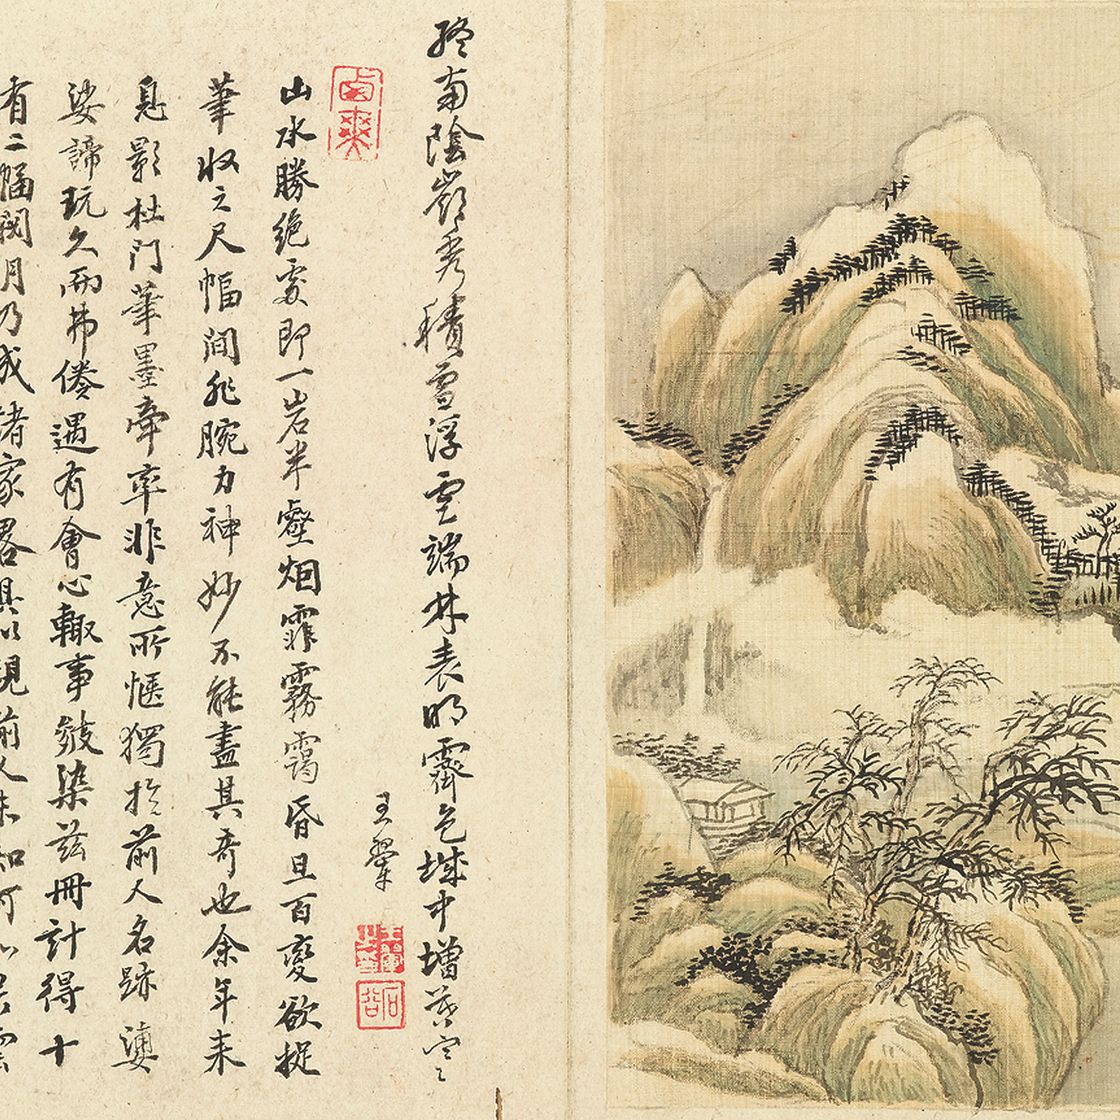 終南陰嶺秀積雪浮雲端林表明霽色城中增暮寒
王翬
石谷
山水勝絕處即一岩半壑烟霏霧靄昏旦百變欲捉
筆收之尺幅間非腕力神妙不能盡其奇也余年来
息影杜門筆墨牽率非意所愜獨於前人名跡婆
娑諦玩久而弗倦遇有會心輒事皴染茲冊計得十
有二幅閱月乃成諸家畧具以視前人未知何